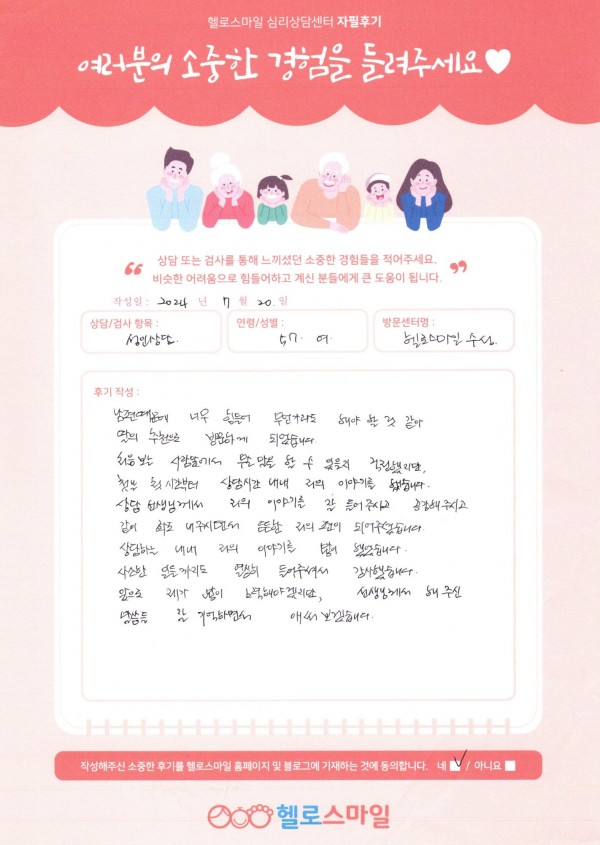 헬로스마일 심리상담센터 자필후기
여러분의 소중한 경험을 들려주세요♥
상담 또는 검사를 통해 느끼셨던 소중한 경험들을 적어주세요.
비슷한 어려움으로 힘들어하고 계신 분들에게 큰 도움이 됩니다.
작성일 : 2024 년 7 월 20. 일
상담/검사 항목 :
성인상담.
연령/성별 :
57. 여.
방문센터명 :
헬로스마일 수성
후기 작성 :
남편때문에 너무 힘들어 무언가라도 해야 할 것 같아
딸의 추천으로 방문하게 되었습니다.
처음보는 사람앞에서 무슨 말을 할 수 있을지 걱정했지만,
첫 시간부터 상담시간 내내 저의 이야기를 했습니다.
상담 선생님께서 저의 이야기를 잘 들어 주시고 공감해주시고
같이 화도 내주시면서 든든한 저의 편이 되어주셨습니다.
상담하는 내내 저의 이야기를 많이 했었습니다.
사소한 일들까지도 열심히 들어주셔서 감사했습니다.
앞으로 제가 많이 노력해야겠지만, 선생님께서 해 주신
말씀들 잘 기억하면서 애써 보겠습니다.
작성해주신 소중한 후기를 헬로스마일 홈페이지 및 블로그에 기재하는 것에 동의합니다. 네 / 아니요
헬로스마일